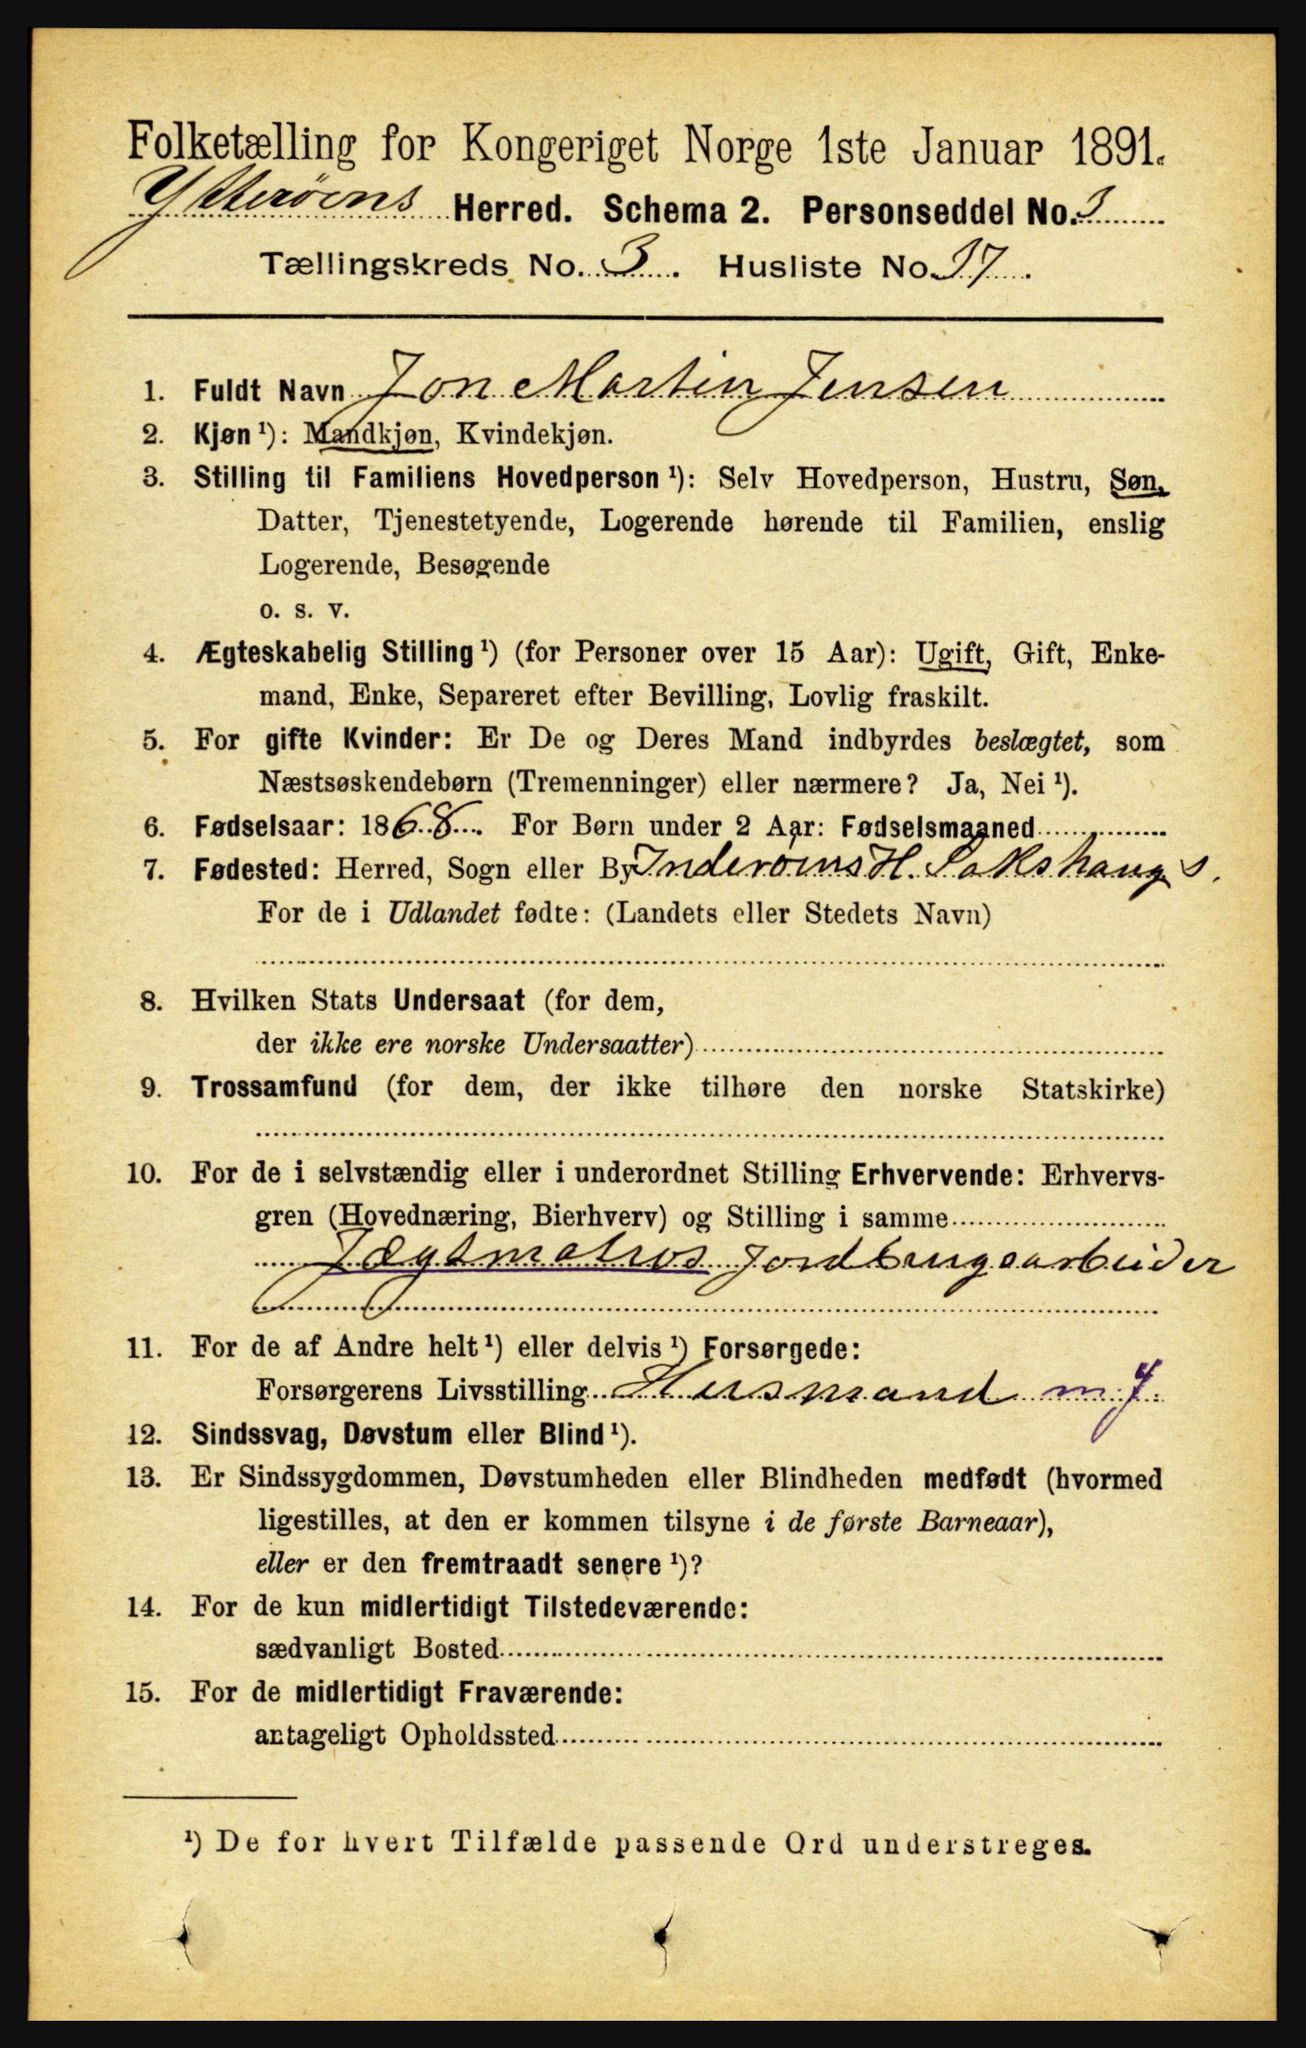 Folketælling for Kongeriget Norge 1ste Januar 1891.
Ytterøens Herred. Schema 2. Personseddel No. 3
Tællingskreds No. 3. Husliste No. 37.
1. Fuldt Navn Jon Martin Jensen
2. Kjøn ¹): Mandkjøn, Kvindekjøn.
3. Stilling til Familiens Hovedperson ¹): Selv Hovedperson, Hustru, Søn,
Datter, Tjenestetyende, Logerende hørende til Familien, enslig
Logerende, Besøgende
o. s. v.
4. Ægteskabelig Stilling ¹) (for Personer over 15 Aar): Ugift, Gift, Enke-
mand, Enke, Separeret efter Bevilling, Lovlig fraskilt.
5. For gifte Kvinder: Er De og Deres Mand indbyrdes beslægtet, som
Næstsøskendebørn (Tremenninger) eller nærmere? Ja, Nei ¹).
6. Fødselsaar: 1868. For Børn under 2 Aar: Fødselsmaaned
7. Fødested: Herred, Sogn eller By Inderøens H. Sakshaug s.
For de i Udlandet fødte: (Landets eller Stedets Navn)
8. Hvilken Stats Undersaat (for dem,
der ikke ere norske Undersaatter)
9. Trossamfund (for dem, der ikke tilhøre den norske Statskirke)
10. For de i selvstændig eller i underordnet Stilling Erhvervende: Erhvervs-
gren (Hovednæring, Bierhverv) og Stilling i samme
Jægtmatros Jordbrugsarbeider
11. For de af Andre helt ¹) eller delvis ¹) Forsørgede:
Forsørgerens Livsstilling Husmand m. J.
12. Sindssvag, Døvstum eller Blind ¹).
13. Er Sindssygdommen, Døvstumheden eller Blindheden medfødt (hvormed
ligestilles, at den er kommen tilsyne i de første Barneaar),
eller er den fremtraadt senere ¹)?
14. For de kun midlertidigt Tilstedeværende:
sædvanligt Bosted
15. For de midlertidigt Fraværende:
antageligt Opholdssted
¹) De for hvert Tilfælde passende Ord understreges.